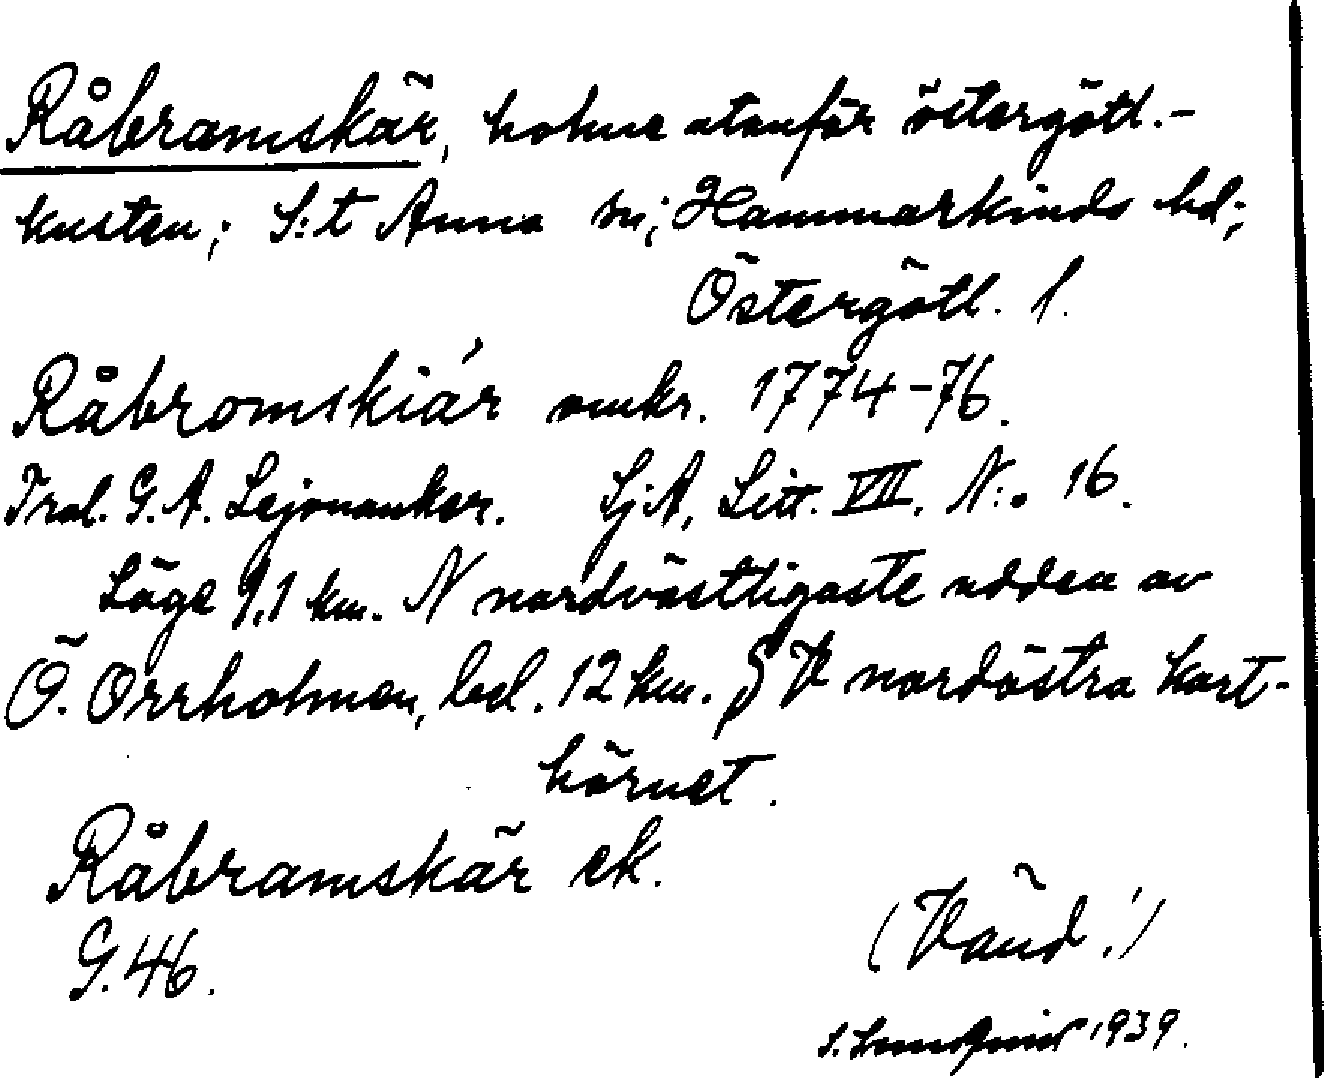 Råbramskär, holme utanför östergötl.-
kusten; S:t Anna sn; Hammarkinds hd;
Östergötl. l.
Råbromskiär omkr. 1774-76.
Trol. G. A. Lejonanker. SjA, Litt. VII. N:o 16.
Läge 9,1 km. N nordvästligaste udden av
Ö. Orrholmen, bel. 12 km. S V nordöstra kart-
hörnet.
Råbramskär ek.
G. 46.
(Vänd!)
S. Lundqvist 1939.